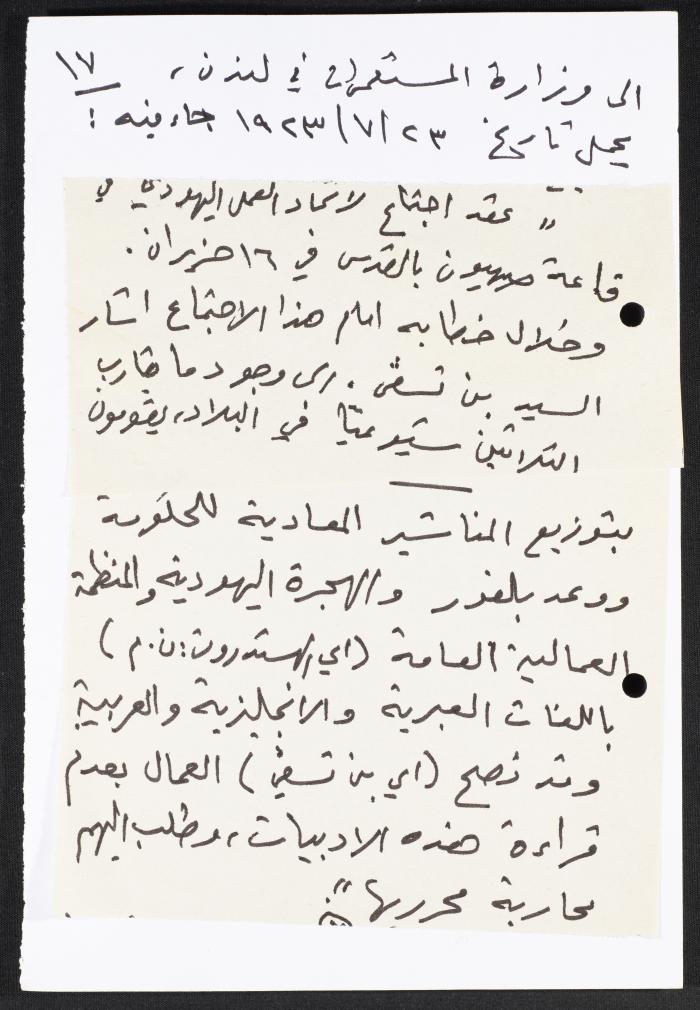 ١٧
الى وزارة المستعمرات في لندن،
يحمل تاريخ ٢٣/٧/١٩٢٣ جاء فيه:
" عقد اجتماع لاتحاد العمل اليهودي في
قاعة صهيون بالقدس في ١٦ حزيران.
وخلال خطابه امام هذا الاجتماع اشار
السيد بن تسفي. الى وجود ما يقارب
الثلاثين ستيوعيّا في البلاد، يقومون
بتوزيع المناشير المعادية للحكومة
ووعد بلفور والهجرة اليهودية والمنظمة
العمالية العامة (اي الهستدروت: ن.م)
باللغات العبرية والانجليزية والعربية
وقد نصح (اي بن تسفي) العمال بعدم
قراءة هذه الادبيات، وطلب اليهم
محاربة محرريها"